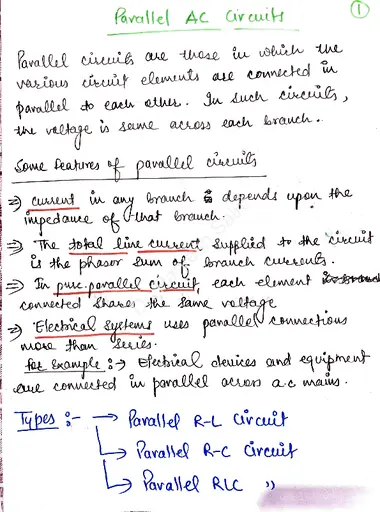 Parallel AC Circuits
1
Parallel circuits are those in which the
various circuit elements are connected in
parallel to each other. In such circuits,
the voltage is same across each branch.
Some features of parallel circuits
⇒ current in any branch depends upon the
impedance of that branch.
⇒ The total line current supplied to the circuit
is the phasor sum of branch currents.
⇒ In pure parallel circuit, each element
connected shares the same voltage
⇒ Electrical systems uses parallel connections
more than series.
for Example :→ Electrical devices and equipment
are connected in parallel across a.c mains.
Types :- → Parallel R-L Circuit
↳ Parallel R-C Circuit
↳ Parallel RLC "